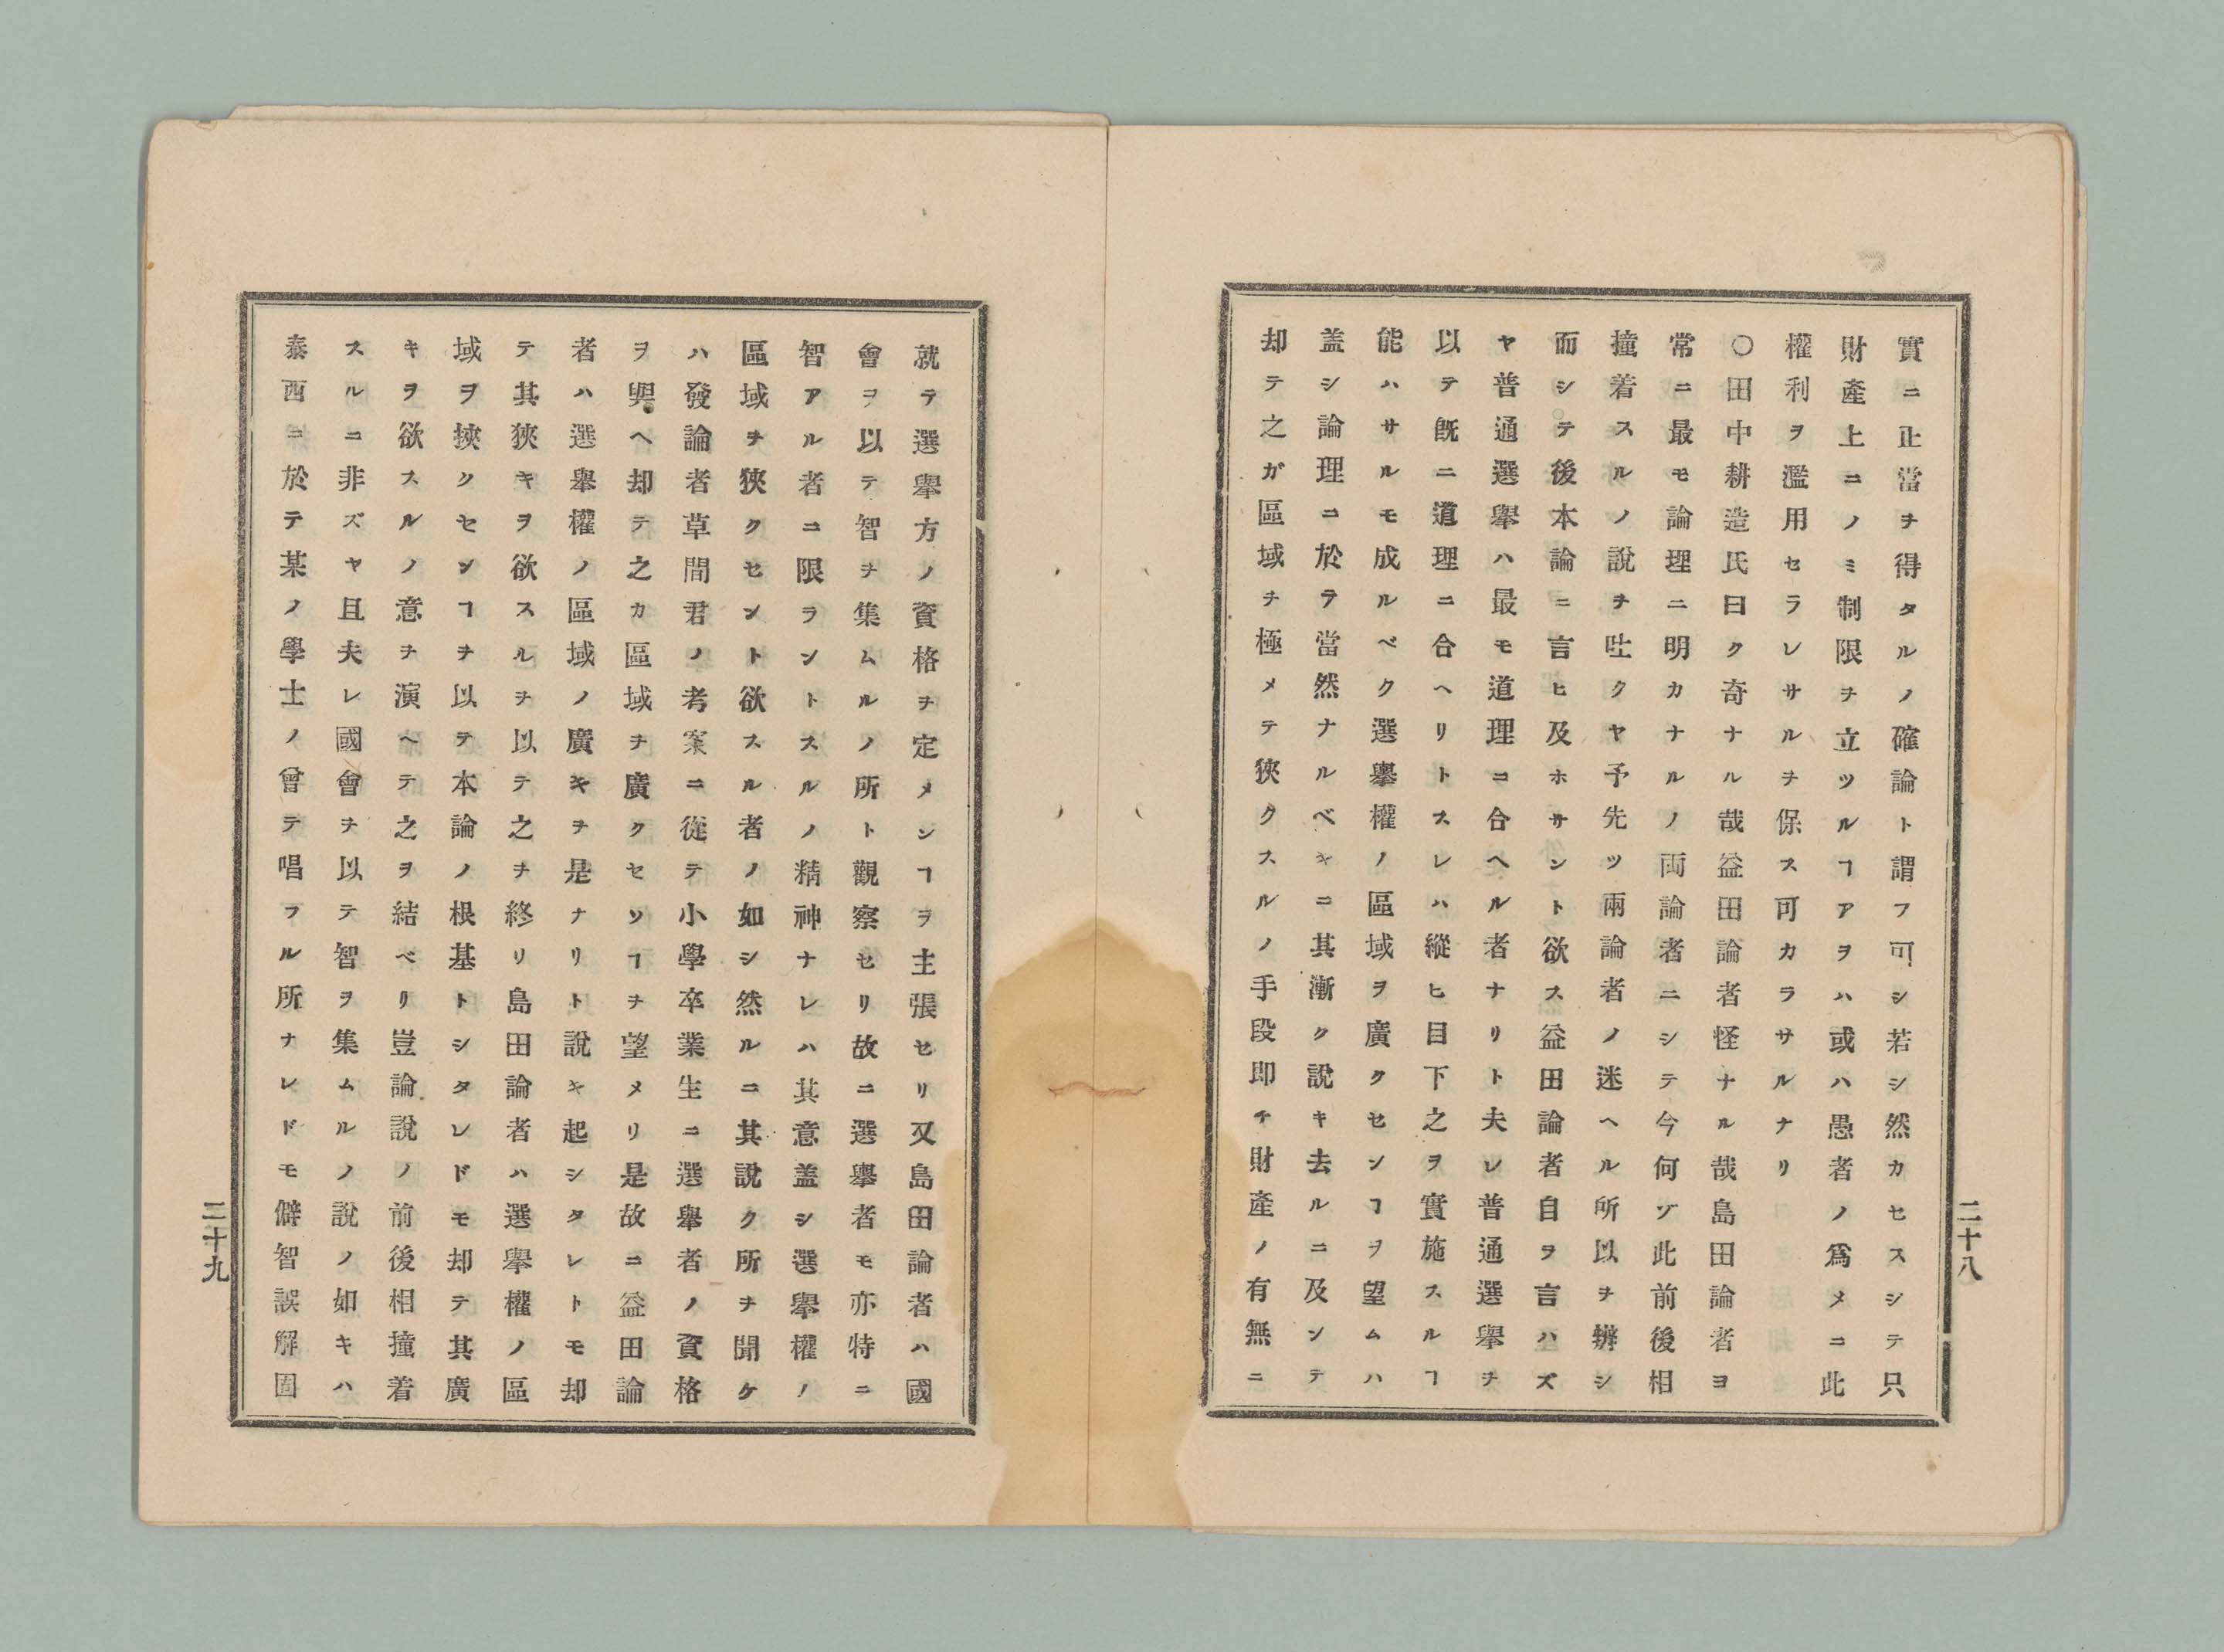 實ニ止當ヲ得タルノ確論ト謂フ可シ若シ然カセスシテ只
財產上ニノミ制限ヲ立ツルヿアヲハ或ハ愚者ノ爲メニ此
權利ヲ濫用セラレサルヲ保ス可カラサルナリ
〇田中耕造氏曰ク奇ナル哉益田論者怪ナル哉島田論者ヨ
常ニ最モ論理ニ明カナルノ両論者ニシテ今何ゾ此前後相
撞着スルノ說ヲ吐クヤ予先ツ兩論者ノ迷ヘル所以ヲ辨シ
而シテ後本論ニ言ヒ及ホサント欲ス益田論者自ヲ言ハズ
ヤ普通選擧ハ最モ道理ニ合ヘル者ナリト夫レ普通選擧ヲ
以テ既ニ道理ニ合ヘリトスレハ縱ヒ目下之ヲ實施スルヿ
能ハサルモ成ルベク選擧權ノ區域ヲ廣クセンヿヲ望ムハ
盖シ論理ニ於テ當然ナルベキニ其漸ク說キ去ルニ及ンテ
却テ之ガ區域ヲ極メテ狹クスルノ手段即チ財產ノ有無ニ
二十八
就テ選擧方ノ資格ヲ定メシヿヲ主張セリ又島田論者ハ國
會ヲ以テ智ヲ集ムルノ所ト觀察セリ故ニ選擧者モ亦特ニ
智アル者ニ限ラントスルノ精神ナレハ其意盖シ選擧權ノ
區域ヲ狹クセント欲スル者ノ如シ然ルニ其說ク所ヲ聞ケ
ハ發論者草間君ノ考案ニ從テ小學卒業生ニ選擧者ノ資格
ヲ與ヘ却テ之カ區域ヲ廣クセソヿヲ望メリ是故ニ益田論
者ハ選擧權ノ區域ノ廣キヲ是ナリト說キ起シタレトモ却
テ其狹キヲ欲スルヲ以テ之ヲ終リ島田論者ハ選擧權ノ區
域ヲ挾クセンヿヲ以テ本論ノ根基トシタレドモ却テ其廣
キヲ欲スルノ意ヲ演ヘテ之ヲ結ベリ豈論說ノ前後相撞着
スルニ非ズヤ且夫レ國會ヲ以テ智ヲ集ムルノ說ノ如キハ
泰西ニ於テ某ノ學士ノ曾テ唱フル所ナレドモ僻智誤解固
二十九